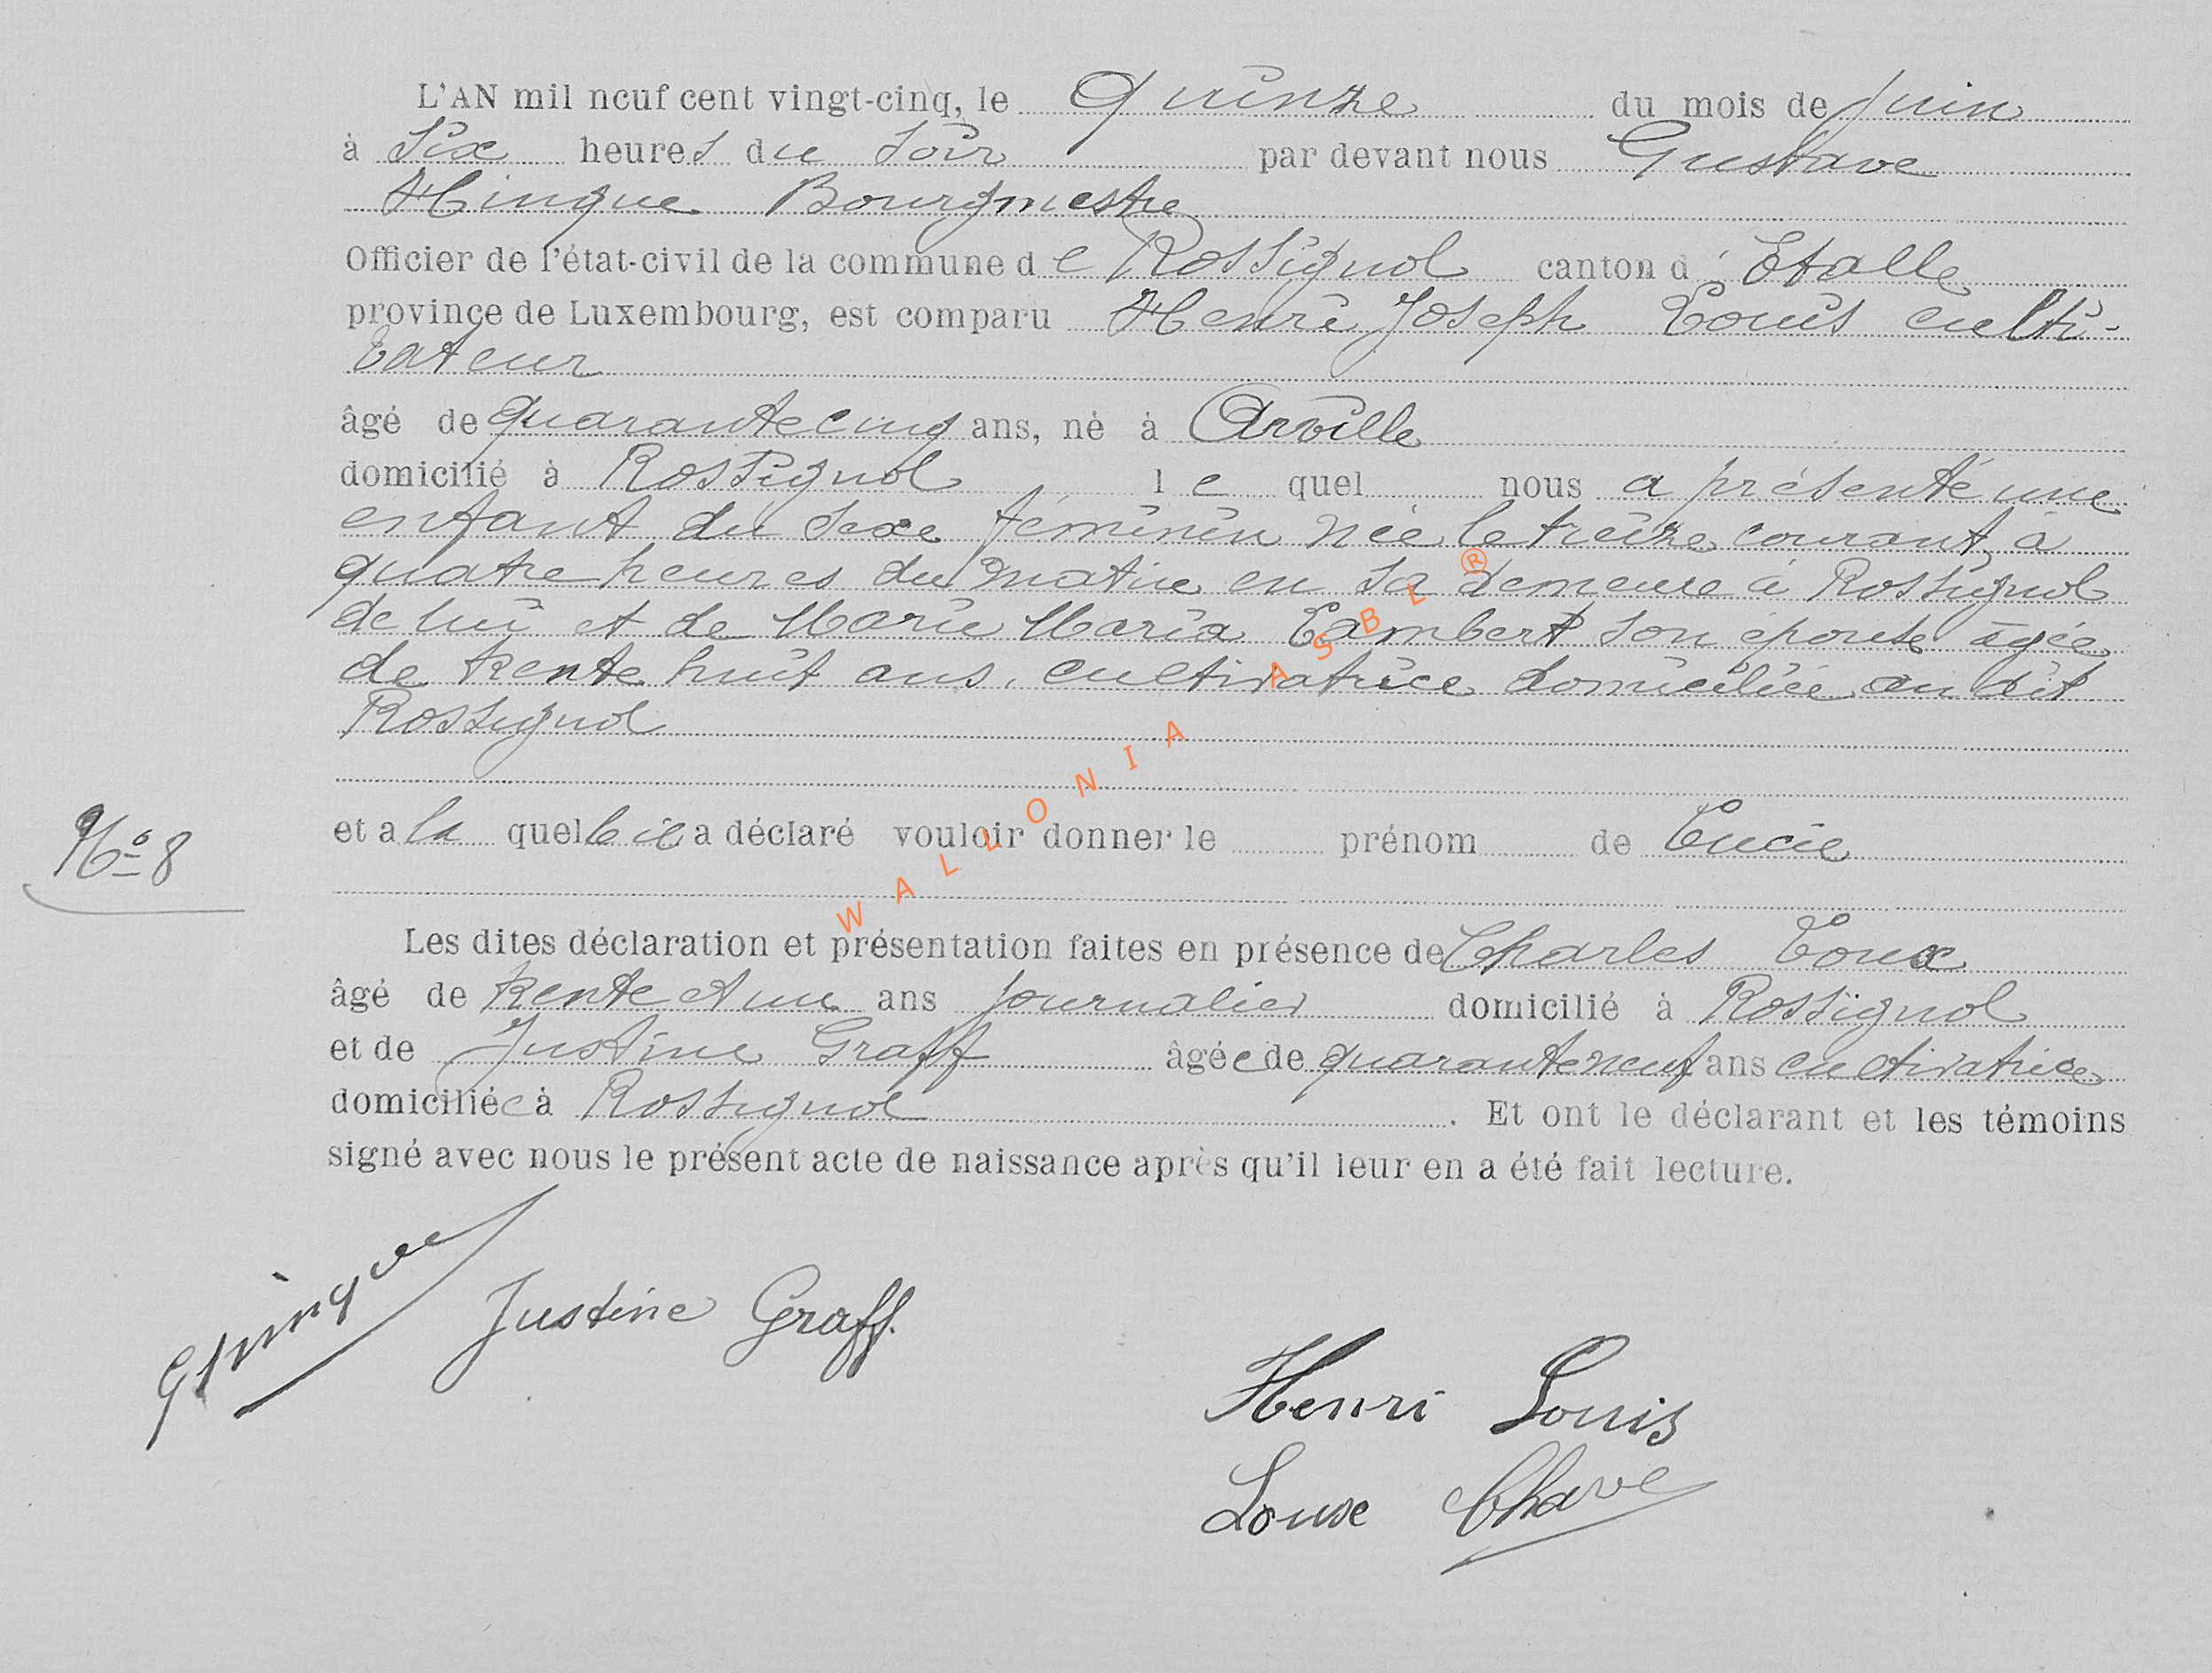 L'AN mil neuf cent vingt-cinq, le quinze du mois de juin
à six heures du soir par devant nous Gustave
Hinque Bourgmestre
Officier de l'état-civil de la commune de Rossignol canton d'Etalle
province de Luxembourg, est comparu Henri Joseph Louis culti-
vateur
âgé de quarante cinq ans, né à Arville
domicilié à Rossignol lequel nous a présenté une
enfant du sexe féminin née le treize courant, à
quatre heures du matin en sa demeure à Rossignol
de lui et de Marie Maria Lambert son épouse âgée
de trente huit ans, cultivatrice domiciliée au dit
Rossignol
No 8
et a la quelle il a déclaré vouloir donner le prénom de Lucie
Les dites déclaration et présentation faites en présence de Charles Loux
âgé de trente et un ans journalier domicilié à Rossignol
et de Justine Graff âgée de quarante neuf ans cultivatrice
domiciliée à Rossignol. Et ont le déclarant et les témoins
signé avec nous le présent acte de naissance après qu'il leur en a été fait lecture.
GHinque
Justine Graff.
Henri Louis
WALLONIA ASBL ®